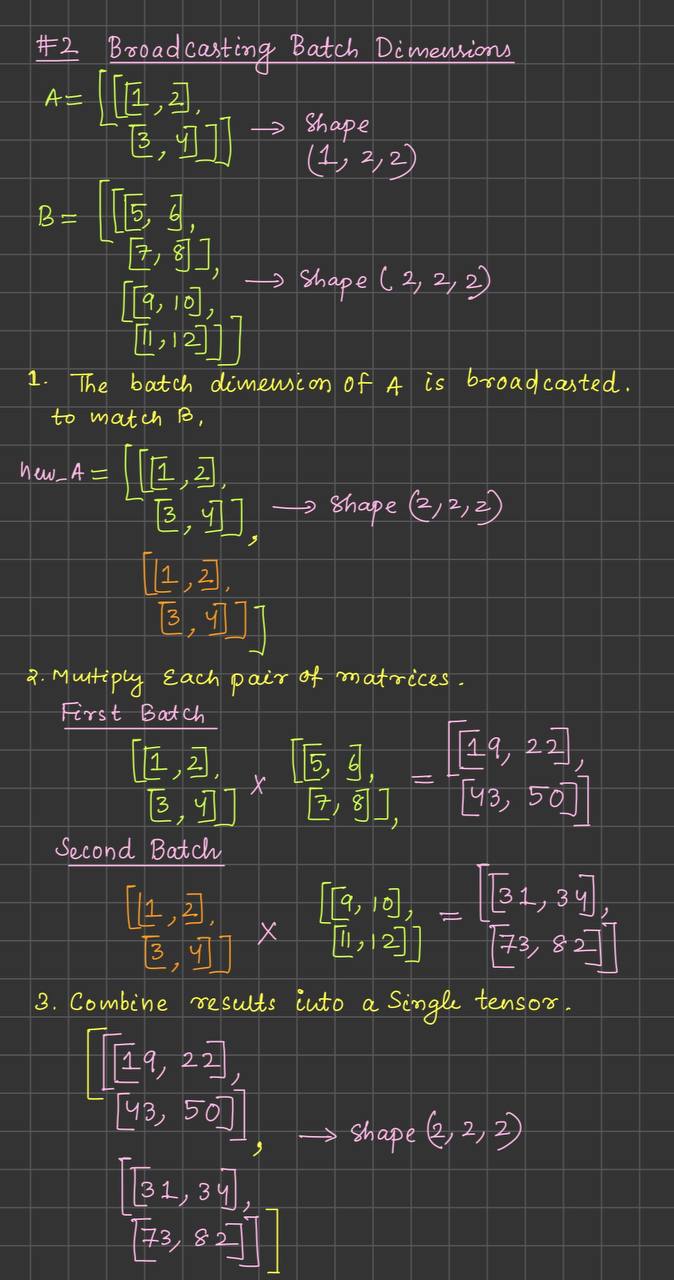 #2 Broadcasting Batch Dimensions
A = [[[1, 2],
[3, 4]]] → Shape
(1, 2, 2)
B = [[[5, 6],
[7, 8]],
[[9, 10],
[11, 12]]] → Shape (2, 2, 2)
1. The batch dimension of A is broadcasted.
to match B,
new_A = [[[1, 2],
[3, 4]], → Shape (2, 2, 2)
[[1, 2],
[3, 4]]]
2. Multiply Each pair of matrices.
First Batch
[[1, 2], × [[5, 6], = [[19, 22],
[3, 4]] [7, 8]], [43, 50]]
Second Batch
[[1, 2], × [[9, 10], = [[31, 34],
[3, 4]] [11, 12]] [73, 82]]
3. Combine results into a Single tensor.
[[[19, 22],
[43, 50]], → Shape (2, 2, 2)
[[31, 34],
[73, 82]]]